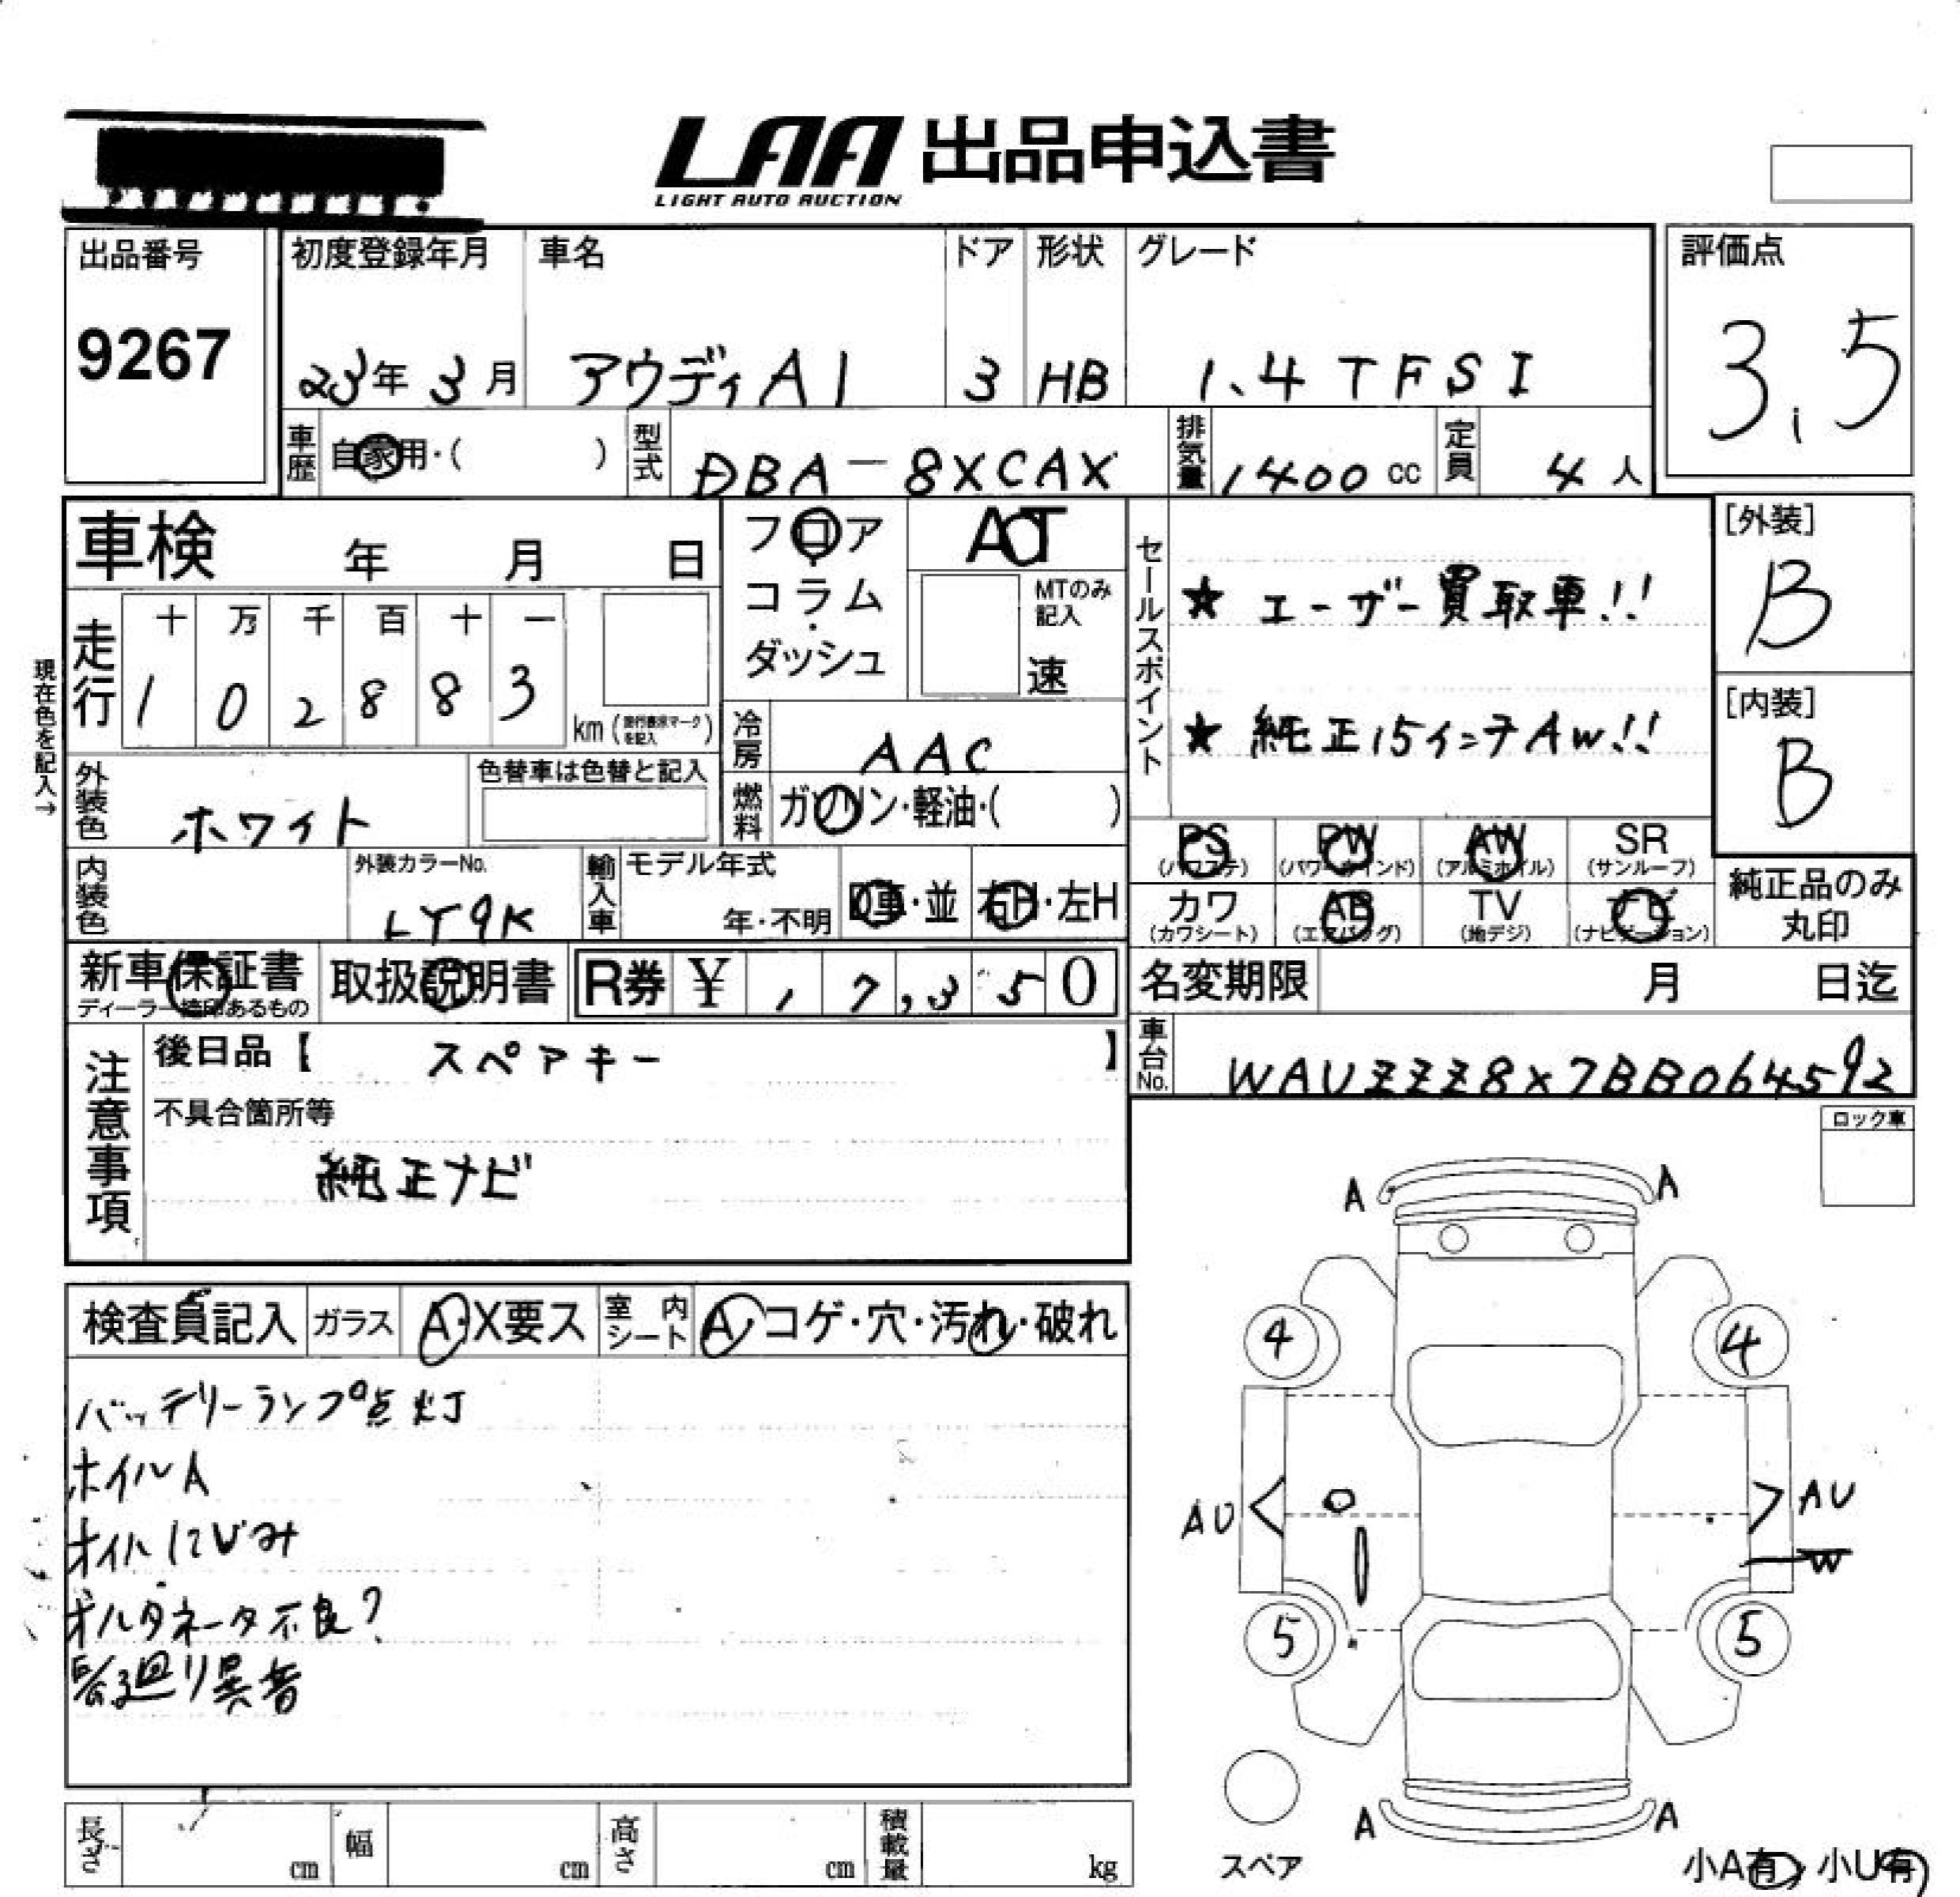 LAA 出品申込書
LIGHT AUTO AUCTION
出品番号
9267
初度登録年月 車名 ドア 形状 グレード
23年 3月 アウディA1 3 HB 1.4 TFSI
評価点
3.5
車歴 自家用・( ) 型式 DBA-8XCAX 排気量 1400 cc 定員 4 人
車検 年 月 日
フロア・コラム・ダッシュ
AT
MTのみ記入
速
走行
十 万 千 百 十 一
1 0 2 8 8 3
km (走行表示マークを記入)
現在色を記入→
冷房 AAC
燃料 ガソリン・軽油・( )
外装色 ホワイト
色替車は色替と記入
内装色
外装カラーNo.
LY9K
輸入車
モデル年式
年・不明
D車・並 右H・左H
セールスポイント
★ ユーザー買取車!!
★ 純正15インチAW!!
[外装]
B
[内装]
B
PS (パワステ) PW (パワーウインド) AW (アルミホイル) SR (サンルーフ)
カワ (カワシート) AB (エアバッグ) TV (地デジ) ナビ (ナビゲーション)
純正品のみ丸印
新車保証書
ディーラー捺印あるもの
取扱説明書
R券 ¥ 1 7,3 5 0
名変期限 月 日迄
車台No. WAUZZZ8X7BB064592
注意事項
後日品【 スペアキー 】
不具合箇所等
純正ナビ
ロック車
検査員記入 ガラス A・X要ス 室内シート A・コゲ・穴・汚れ・破れ
バッテリーランプ点灯
ホイルA
オイルにじみ
オルタネータ不良?
廻り異音
A A
4 4
AU AU
W
5 5
A A
スペア
小A有 小U有
長さ cm 幅 cm 高さ cm 積載量 kg